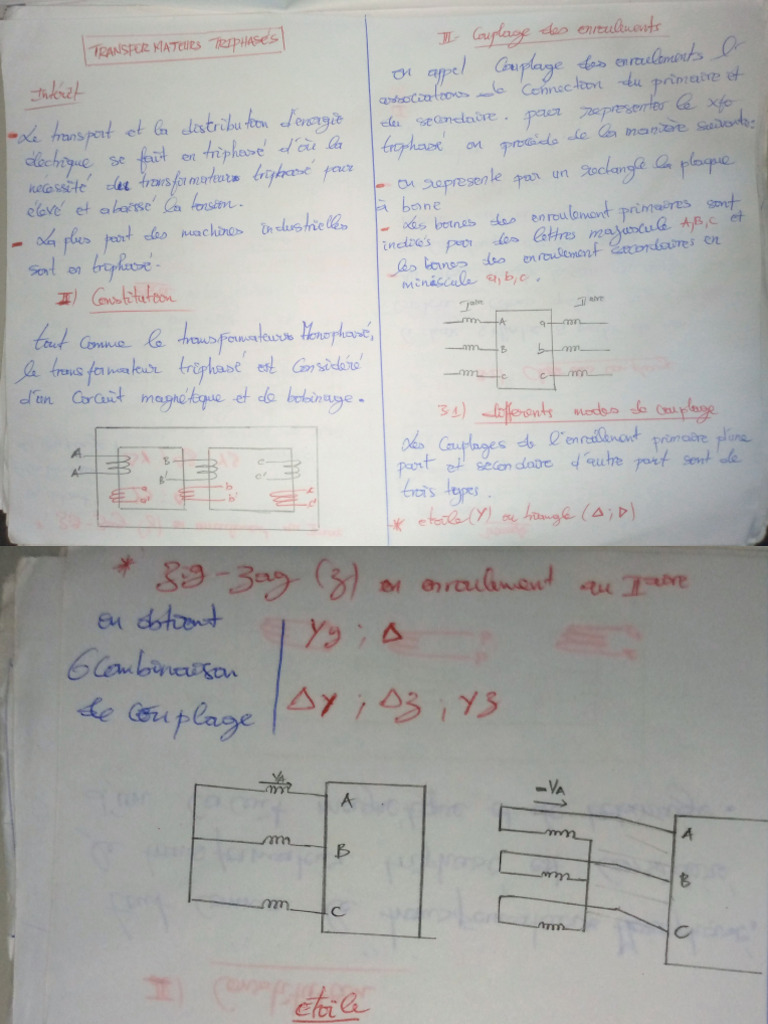 TRANSFERMATEURS TRIPHASÉS
Intérêt
- Le transport et la distribution d'énergie
électrique se fait en triphasé d'où la
nécéssité du transformateur triphasé pour
élevé et abaissé la tension.
- La plus part des machines industrielles
sont en triphasé.
II) Constitution
tout comme le transformateurs Monophasé,
le transformateur triphasé est Considéré
d'un Corcuit magnétique et de bobinage.
A
A'
B
B'
b
b'
c
c'
III- Couplage des enroulements
on appel Couplage des enroulements
associations de Connection du primaire et
du secondaire. pour representer le xfo
triphasé on procède de la manière suivante:
- on represente par un rectangle la plaque
à borne
- Les bornes des enroulement primaires sont
indixés par des lettres majuscule A, B, C et
les bornes des enroulement secondaires en
miniscule a, b, c.
Iaire
IIaire
A a
B b
C c
3.1) differents modes de couplage
Les Couplages de l'enroulement primaire d'une
part et secondaire d'autre part sont de
trois types.
* etoile (Y) ou triangle (Δ; D)
* Zig-Zag (z) en enroulement au IIaire
en obtient
6 Combinaison
de couplage
Yy ; Δ
ΔY ; Δz ; Yz
VA
A
B
C
-VA
A
B
C
etoile